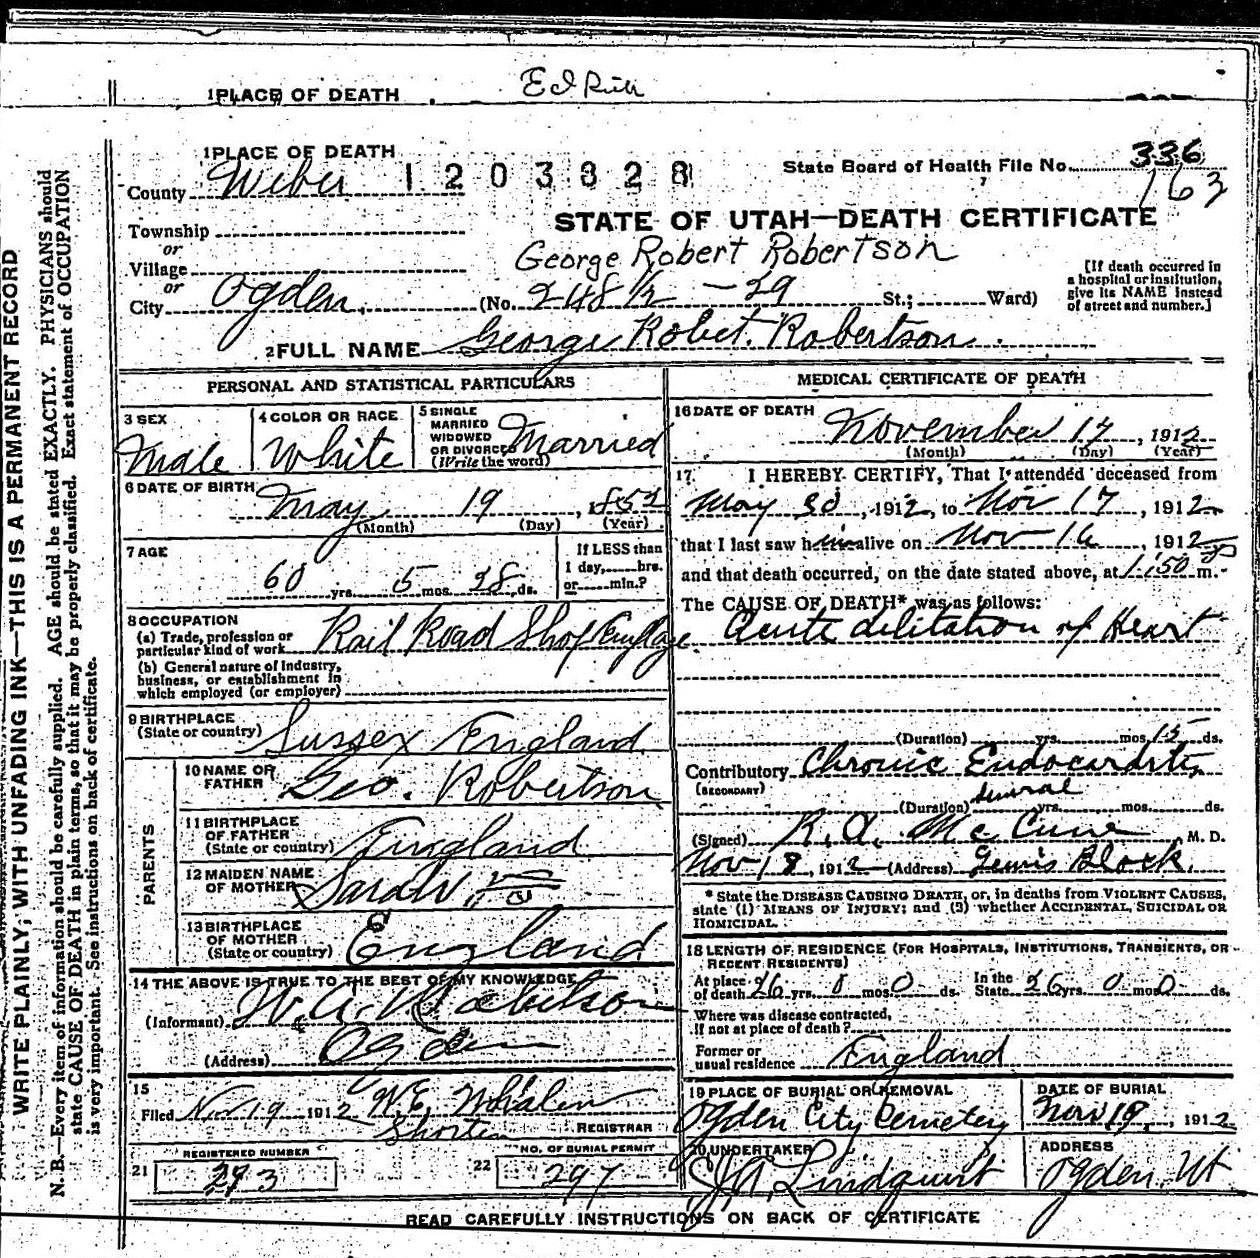 1 PLACE OF DEATH
1 PLACE OF DEATH
County Weber 1203828 State Board of Health File No. 336
163
STATE OF UTAH—DEATH CERTIFICATE
Township
or
Village
George Robert Robertson
or
City Ogden (No. 248 1/2 - 29 St.; Ward)
[If death occurred in a hospital or institution, give its NAME instead of street and number.]
2 FULL NAME George Robet. Robertson
PERSONAL AND STATISTICAL PARTICULARS
3 SEX Male
4 COLOR OR RACE White
5 SINGLE MARRIED WIDOWED OR DIVORCED (Write the word) Married
6 DATE OF BIRTH May 19, 1852
(Month) (Day) (Year)
7 AGE 60 yrs. 5 mos. 28 ds.
If LESS than 1 day, hrs. or min.?
8 OCCUPATION
(a) Trade, profession or particular kind of work Rail Road Shop
(b) General nature of industry, business, or establishment in which employed (or employer)
9 BIRTHPLACE (State or country) Sussex England
PARENTS
10 NAME OF FATHER Geo. Robertson
11 BIRTHPLACE OF FATHER (State or country) England
12 MAIDEN NAME OF MOTHER Sarah
13 BIRTHPLACE OF MOTHER (State or country) England
14 THE ABOVE IS TRUE TO THE BEST OF MY KNOWLEDGE
(Informant) W. A. Robertson
(Address) Ogden
15
Filed Nov 19 1912 W. E. Whalen
Shorten REGISTRAR
REGISTERED NUMBER
21 293
NO. OF BURIAL PERMIT
22 297
MEDICAL CERTIFICATE OF DEATH
16 DATE OF DEATH November 17, 1912
(Month) (Day) (Year)
17 I HEREBY CERTIFY, That I attended deceased from
May 30, 1912, to Nov 17, 1912
that I last saw him alive on Nov 16, 1912
and that death occurred, on the date stated above, at 1:50 P m.
The CAUSE OF DEATH* was as follows:
Acute dilitation of Heart
(Duration) yrs. mos. 15 ds.
Contributory Chronic Endocarditis
(SECONDARY)
(Duration) several yrs. mos. ds.
(Signed) R. A. McCune M. D.
Nov 18, 1912 (Address) Lewis Block
* State the DISEASE CAUSING DEATH, or, in deaths from VIOLENT CAUSES,
state (1) MEANS OF INJURY; and (2) whether ACCIDENTAL, SUICIDAL OR
HOMICIDAL.
18 LENGTH OF RESIDENCE (FOR HOSPITALS, INSTITUTIONS, TRANSIENTS, OR
RECENT RESIDENTS)
At place of death 26 yrs. 0 mos. 0 ds. In the State 26 yrs. 0 mos. 0 ds.
Where was disease contracted,
If not at place of death?
Former or usual residence England
19 PLACE OF BURIAL OR REMOVAL
Ogden City Cemetery
DATE OF BURIAL
Nov 19, 1912
20 UNDERTAKER
Lindquist
ADDRESS
Ogden, Ut
READ CAREFULLY INSTRUCTIONS ON BACK OF CERTIFICATE
WRITE PLAINLY, WITH UNFADING INK—THIS IS A PERMANENT RECORD
N. B.—Every item of information should be carefully supplied. AGE should be stated EXACTLY. PHYSICIANS should
state CAUSE OF DEATH in plain terms, so that it may be properly classified. Exact statement of OCCUPATION
is very important. See instructions on back of certificate.